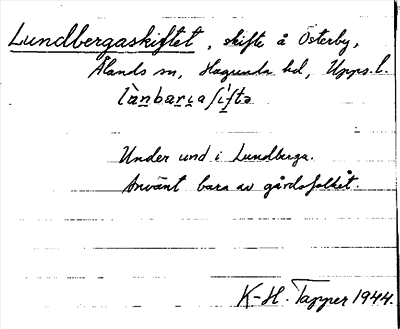 Lundbergaskiftet, skifte å Österby,
Ålands sn, Hagunda hd, Upps. l.
Under und i Lundberga.
Använt bara av gårdsfolket.
K-H. Tapper 1944.